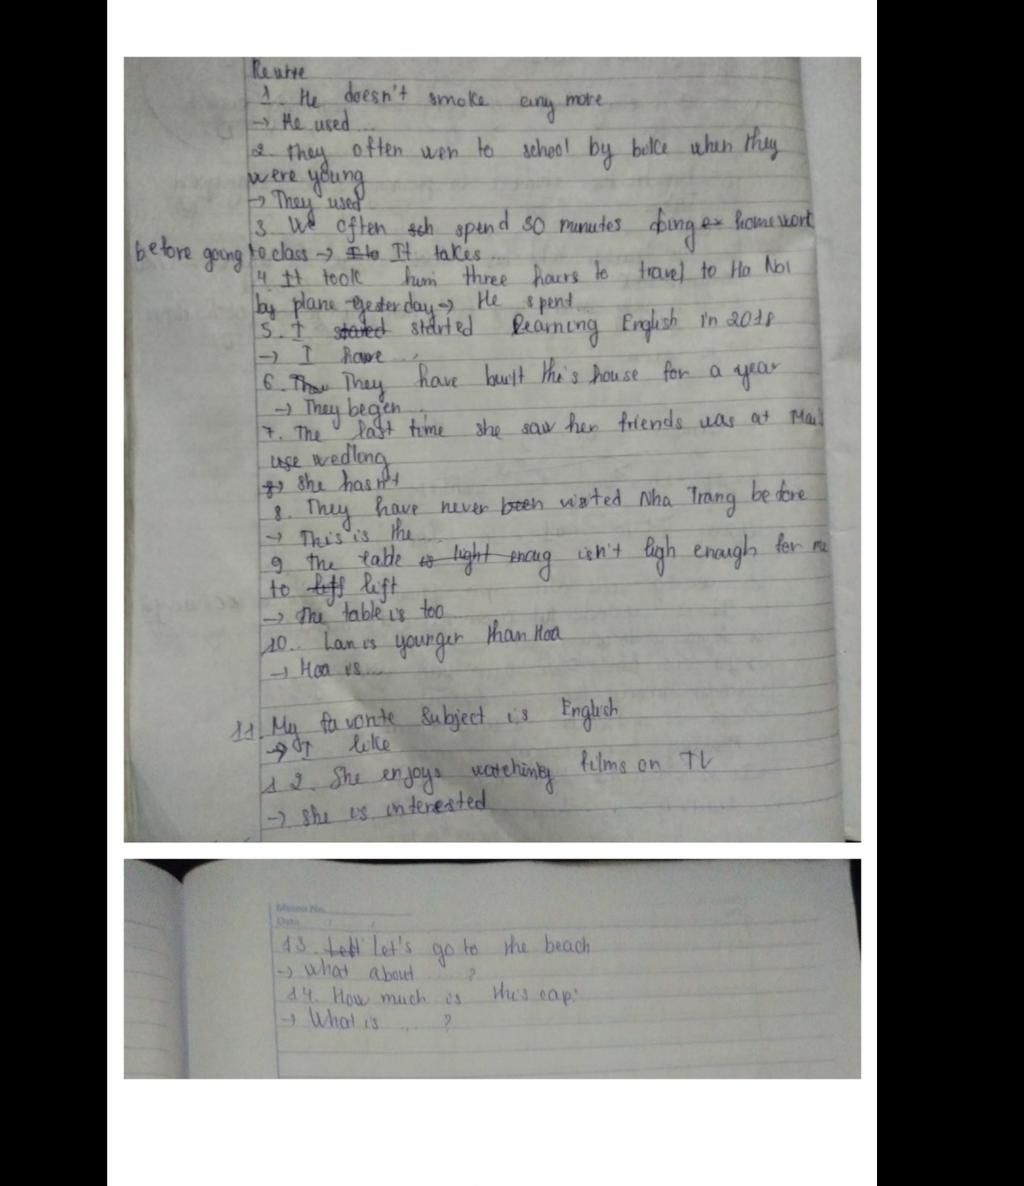 Rewrite
1. He doesn't smoke any more
→ He used...
2. They often wen to school by bike when they
were young
→ They used
3 We often sch spend 30 minutes doing ex homework
before going to class → I to It takes...
4. It took him three hours to travel to Ha Noi
by plane yesterday → He spent...
5. I stated started learning English in 2018
→ I have...
6. They have built this house for a year
→ They began...
7. The last time she saw her friends was at
wedding
→ She hasn't
8. They have never been visited Nha Trang before
→ This is the...
9 The table is light enoug isn't ligh enough for me
to lift
→ The table is too
10. Lan is younger than Hoa
→ Hoa is...
11. My favorite subject is English
→ I like
12. She enjoys watching films on TV
→ She is interested
Memo No.
Date / /
13. Let's go to the beach
→ What about ... ?
14. How much is this cap?
→ What is ... ?